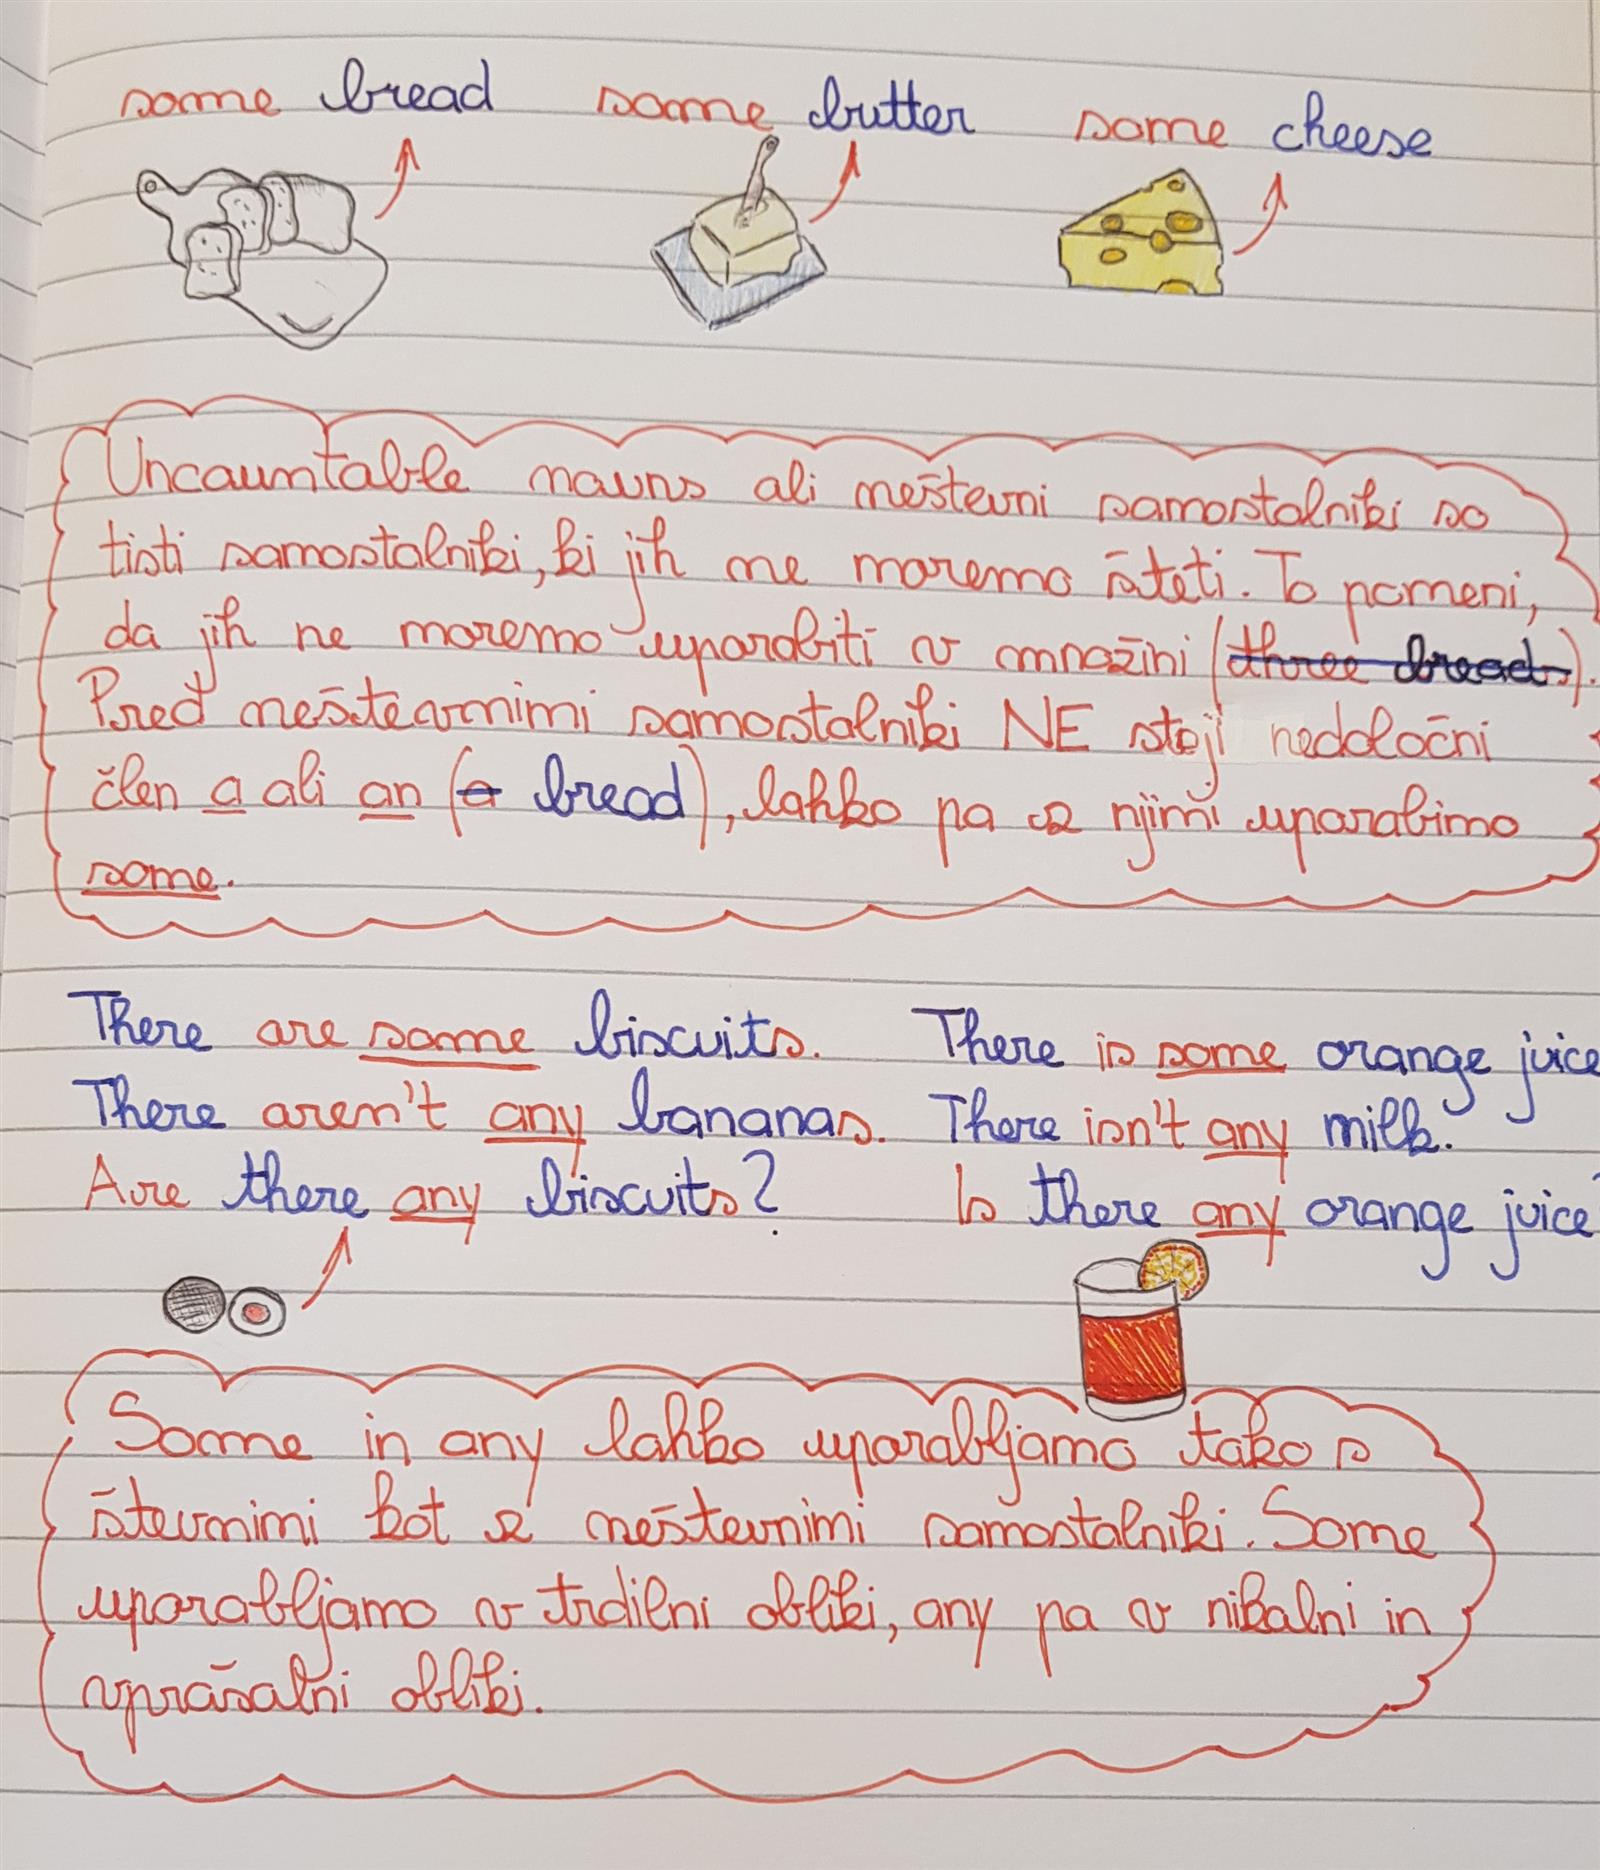 some bread some butter some cheese
Uncountable nouns ali neštevni samostalniki so
tisti samostalniki, ki jih ne moremo šteti. To pomeni,
da jih ne moremo uporabiti v množini (three breads).
Pred neštevnimi samostalniki NE stoji nedoločni
člen a ali an (a bread), lahko pa z njimi uporabimo
some.
There are some biscuits. There is some orange juice
There aren't any bananas. There isn't any milk.
Are there any biscuits? Is there any orange juice
Some in any lahko uporabljamo tako s
števnimi kot z neštevnimi samostalniki. Some
uporabljamo v trdilni obliki, any pa v nikalni in
vprašalni obliki.